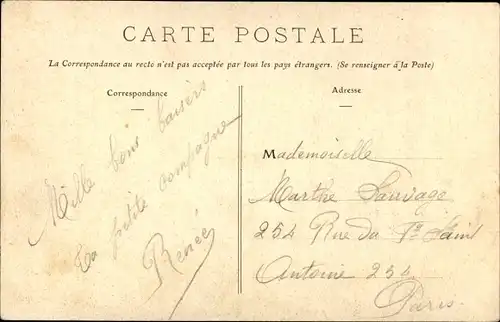 CARTE POSTALE
La Correspondance au recto n'est pas acceptée par tous les pays étrangers. (Se renseigner à la Poste)
Correspondance
Mille bons baisers
Ta petite compagne
Renée
Adresse
Mademoiselle
Marthe Sauvage
254 Rue du Fg Saint
Antoine 254
Paris.